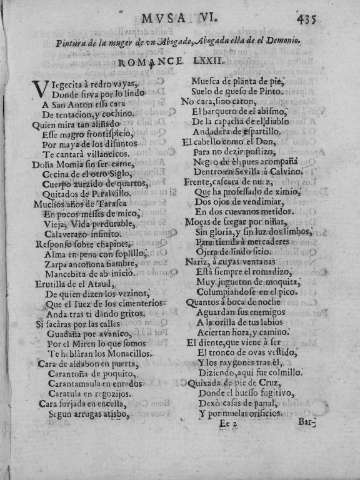 MVSA VI. 435
Pintura de la muger de vn Abogado, Abogada ella de el Demonio.
ROMANCE LXXII.
VIegecita à redro vayas,
Donde sirva por lo lindo
A San Anton essa cara
De tentacion, y cochino.
Quien mira tan aliñado
Esse magro frontispicio,
Por maya de los difuntos
Te cantarà villancicos.
Doña Momia sin ser carne,
Cecina de el otro Siglo,
Cuerpo zurzido de quartos,
Quitados de Peralvillo.
Muchos años de Tarasca
En pocos messes de mico,
Vieja, Vida perdurable,
Calaverazo infinito.
Responso sobre chapines,
Alma en pena con soplillo,
Zarpa anconsina hambre,
Mancebita de ab inicio.
Erutilla de el Ataud,
De quien dizen los vezinos,
Que el Iuez de los cimenterios
Anda tras ti dando gritos.
Si sacàras por las calles
Guadaña por avanico,
Por el Miren lo que somos
Te hablàran los Monacillos.
Cara de aldabon en puerta,
Carantoña de poquito,
Carantamaula en enredos
Caratula en regozijos.
Cara forjada en encella,
Segun arrugas atisbo,
Muesca de planta de pie,
Suelo de queso de Pinto.
No cara, sino caron,
El barquero de el abismo,
De la capacha de el diablo
Andadera de espartillo.
El cabello como el Don,
Para no dezir postizo,
Negro de el pues acompañà
Dentro en Sevilla à Calvino.
Frente, cascara de nuez,
Que ha professado de ximio,
Dos ojos de vendimiar,
En dos cuevanos metidos.
Moças de fregar por niñas,
Sin gloria, y sin luz dos limbos,
Para tienda à mercaderes
Ojera de lindo sitio.
Nariz, à cuyas ventanas
Està siempre el romadizo,
Muy jugueton de moquita,
Columpiandose en el pico.
Quantos à boca de noche
Aguardan sus enemigos
A la orilla de tus labios
Aciertan hora, y camino.
El diente, que viene à ser
El tronco de ovas vestido,
Y los raygones tras èl,
Diziendo, aqui fue colmillo.
Quixada de pie de Cruz,
Donde el huesso fugitivo,
Dexò casas de panal,
Y por muelas orificios.
Ee 2 Bar-